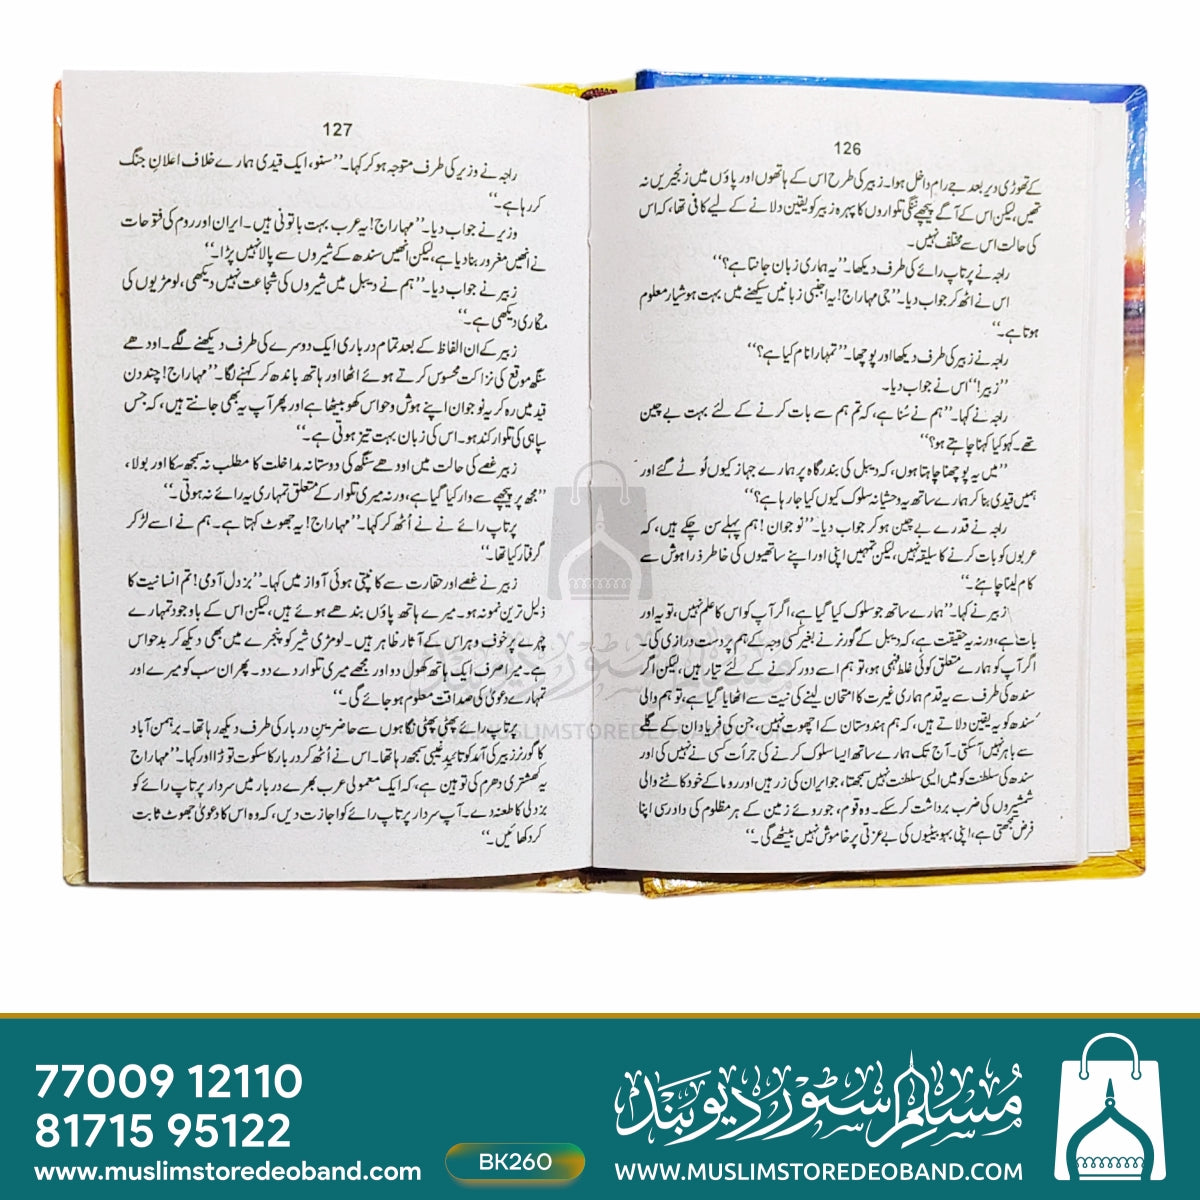 126
کے تھوڑی دیر بعد جے رام داخل ہوا۔ زبیر کی طرح اس کے ہاتھوں اور پاؤں میں زنجیریں نہ
تھیں، لیکن اس کے آگے پیچھے ننگی تلواروں کا پہرہ زبیر کو یقین دلانے کے لیے کافی تھا، کہ اس
کی حالت اس سے مختلف نہیں۔
راجہ نے پرتاپ رائے کی طرف دیکھا۔ ’’یہ ہماری زبان جانتا ہے؟‘‘
اس نے اٹھ کر جواب دیا۔ ’’جی مہاراج! یہ اجنبی زبانیں سیکھنے میں بہت ہوشیار معلوم
ہوتا ہے۔‘‘
راجہ نے زبیر کی طرف دیکھا اور پوچھا۔ ’’تمہارا نام کیا ہے؟‘‘
’’زبیر!‘‘ اس نے جواب دیا۔
راجہ نے کہا۔ ’’ہم نے سُنا ہے، کہ تم ہم سے بات کرنے کے لئے بہت بے چین
تھے۔ کہو کیا کہنا چاہتے ہو؟‘‘
’’میں یہ پوچھنا چاہتا ہوں، کہ دیبل کی بندرگاہ پر ہمارے جہاز کیوں لُوٹے گئے اور
ہمیں قیدی بنا کر ہمارے ساتھ یہ وحشیانہ سلوک کیوں کیا جا رہا ہے؟‘‘
راجہ نے قدرے بے چین ہو کر جواب دیا۔ ’’نوجوان! ہم پہلے سن چکے ہیں، کہ
عربوں کو بات کرنے کا سلیقہ نہیں، لیکن تمہیں اپنی اور اپنے ساتھیوں کی خاطر ذرا ہوش سے
کام لینا چاہئے۔‘‘
زبیر نے کہا۔ ’’ہمارے ساتھ جو سلوک کیا گیا ہے، اگر آپ کو اس کا علم نہیں، تو یہ اور
بات ہے، ورنہ یہ حقیقت ہے، کہ دیبل کے گورنر نے بغیر کسی وجہ کے ہم پر دست درازی کی۔
اگر آپ کو ہمارے متعلق کوئی غلط فہمی ہو، تو ہم اسے دور کرنے کے لئے تیار ہیں، لیکن اگر
سندھ کی طرف سے یہ قدم ہماری غیرت کا امتحان لینے کی نیت سے اٹھایا گیا ہے، تو ہم والی
سندھ کو یہ یقین دلاتے ہیں، کہ ہم ہندوستان کے اچھوت نہیں، جن کی فریاد ان کے گلے
سے باہر نہیں آسکتی۔ آج تک ہمارے ساتھ ایسا سلوک کرنے کی جرأت کسی نے نہیں کی اور
سندھ کی سلطنت کو میں ایسی سلطنت نہیں سمجھتا، جو ایران کی زرہیں اور روما کے خود کاٹنے والی
شمشیروں کی ضرب برداشت کر سکے۔ وہ قوم، جو روئے زمین کے ہر مظلوم کی دادرسی اپنا
فرض سمجھتی ہے، اپنی بہو بیٹیوں کی بے عزتی پر خاموش نہیں بیٹھے گی۔‘‘
127
راجہ نے وزیر کی طرف متوجہ ہو کر کہا۔ ’’سنو، ایک قیدی ہمارے خلاف اعلانِ جنگ
کر رہا ہے۔‘‘
وزیر نے جواب دیا۔ ’’مہاراج! یہ عرب بہت باتونی ہیں۔ ایران اور روم کی فتوحات
نے انھیں مغرور بنا دیا ہے، لیکن انھیں سندھ کے شیروں سے پالا نہیں پڑا۔‘‘
زبیر نے جواب دیا۔ ’’ہم نے دیبل میں شیروں کی شجاعت نہیں دیکھی، لومڑیوں کی
مکاری دیکھی ہے۔‘‘
زبیر کے ان الفاظ کے بعد تمام درباری ایک دوسرے کی طرف دیکھنے لگے۔ اودھے
سنگھ موقع کی نزاکت محسوس کرتے ہوئے اٹھا اور ہاتھ باندھ کر کہنے لگا۔ ’’مہاراج! چند دن
قید میں رہ کر یہ نوجوان اپنے ہوش و حواس کھو بیٹھا ہے اور پھر آپ یہ بھی جانتے ہیں، کہ جس
سپاہی کی تلوار کند ہو۔ اس کی زبان بہت تیز ہوتی ہے۔‘‘
زبیر غصے کی حالت میں اودھے سنگھ کی دوستانہ مداخلت کا مطلب نہ سمجھ سکا اور بولا،
’’مجھ پر پیچھے سے وار کیا گیا ہے، ورنہ میری تلوار کے متعلق تمہاری یہ رائے نہ ہوتی۔‘‘
پرتاپ رائے نے نے اُٹھ کر کہا۔ ’’مہاراج! یہ جھوٹ کہتا ہے۔ ہم نے اسے لڑ کر
گرفتار کیا تھا۔‘‘
زبیر نے غصے اور حقارت سے کانپتی ہوئی آواز میں کہا۔ ’’بزدل آدمی! تم انسانیت کا
ذلیل ترین نمونہ ہو۔ میرے ہاتھ پاؤں بندھے ہوئے ہیں، لیکن اس کے باوجود تمہارے
چہرے پر خوف و ہراس کے آثار ظاہر ہیں۔ لومڑی شیر کو پنجرے میں بھی دیکھ کر بدحواس
ہے۔ میرا صرف ایک ہاتھ کھول دو اور مجھے میری تلوار دے دو۔ پھر ان سب کو میرے اور
تمہارے دعویٰ کی صداقت معلوم ہو جائے گی۔‘‘
پرتاپ رائے پھٹی پھٹی نگاہوں سے حاضرینِ دربار کی طرف دیکھ رہا تھا۔ برہمن آباد
کا گورنر زبیر کی آمد کو تائیدِ غیبی سمجھ رہا تھا۔ اس نے اُٹھ کر دربار کا سکوت توڑا اور کہا۔ ’’مہاراج
یہ کھشتری دھرم کی توہین ہے، کہ ایک معمولی عرب بھرے دربار میں سردار پرتاپ رائے کو
بزدلی کا طعنہ دے۔ آپ سردار پرتاپ رائے کو اجازت دیں، کہ وہ اس کا دعویٰ جھوٹ ثابت
کر دکھائیں۔‘‘
مسلم سٹور دیوبند
WWW.MUSLIMSTOREDEOBAND.COM
77009 12110
81715 95122
www.muslimstoredeoband.com
BK260
مسلم سٹور دیوبند
WWW.MUSLIMSTOREDEOBAND.COM